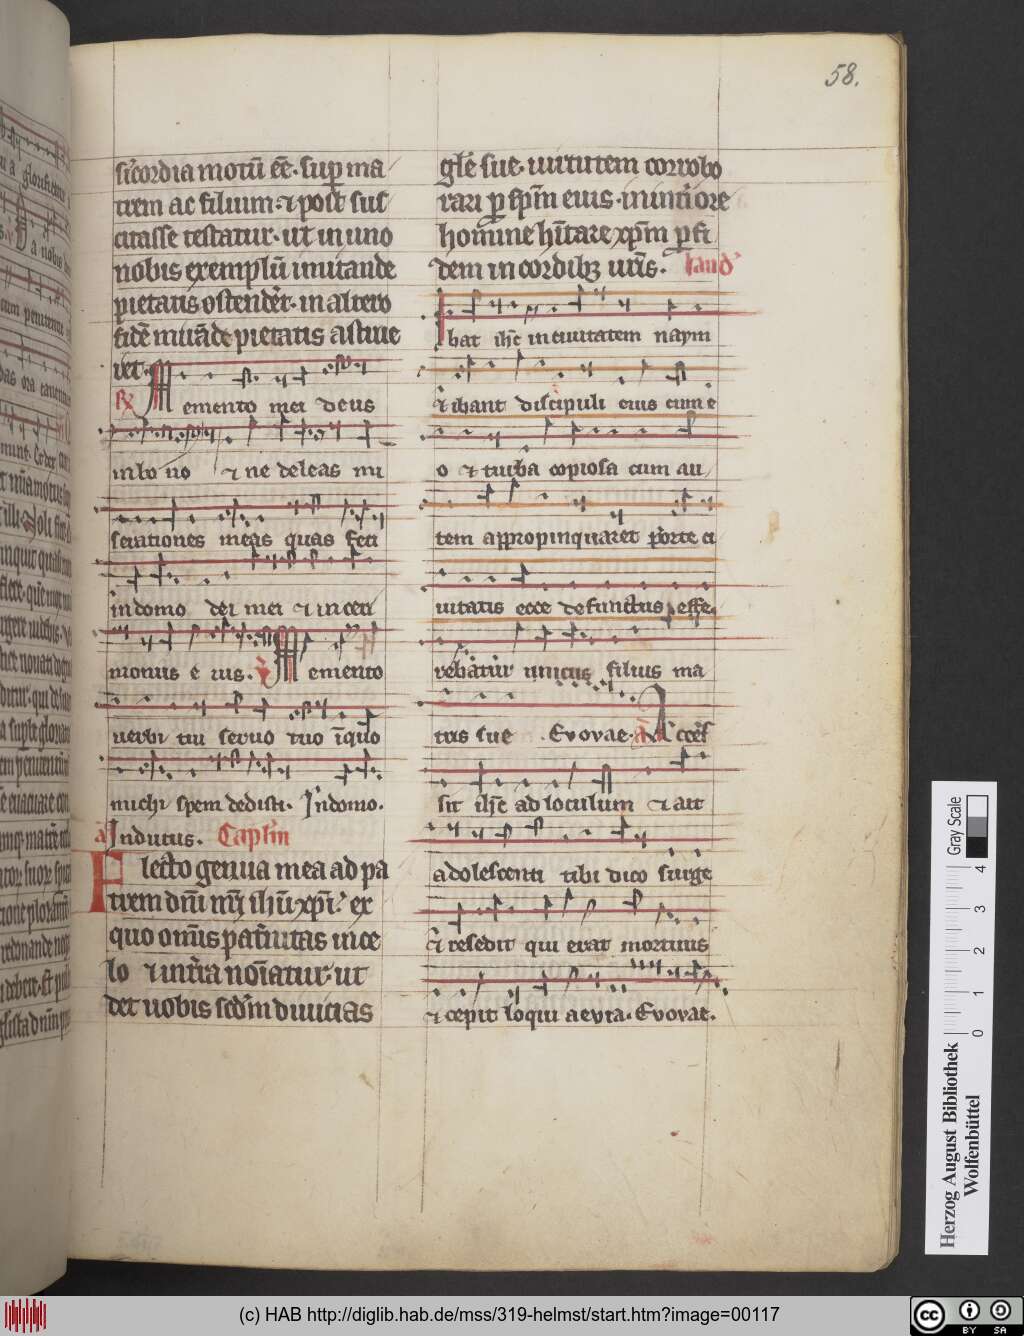 58.
sĩcordia motũ eẽ. sup ma
trem ac filium. ⁊ post sus
citasse testatur. ut in uno
nobis exemplũ imitande
pietatis ostenderet. in altero
fidẽ mirãde pietatis astrue
ret.
℟ Memento mei deus
in bo no ⁊ ne deleas mi
serationes meas quas feci
in domo dei mei ⁊ in ceri
moniis e ius. ℣ Memento
uerbi tui seruo tuo ĩ quo
michi spem dedisti. In domo.
a Indutus. Caplm
Flecto genua mea ad pa
trem dnũ nrĩ ihũ xpĩ. ex
quo omĩs pat̃nitas in ce
lo ⁊ in t̃ra noĩatur. ut
det uobis scdm diuicias
glẽ sue. uirtutem corrobo
rari p spm eius. in int̃iore
homine hĩtare xpm p fi
dem in cordibꝫ urĩs. laud
Ibat ihc in ciuitatem naym
⁊ ibant discipuli eius cum e
o ⁊ turba copiosa cum au
tem appropinquaret porte ci
uitatis ecce defunctus effe
rebatur unicus filius ma
tris sue Evovae. a Acces
sit ihc ad loculum ⁊ ait
adolescenti tibi dico surge
⁊ resedit qui erat mortuus
⁊ cepit loqui aevia. Evovae.
Gray Scale
0 1 2 3 4
Herzog August Bibliothek
Wolfenbüttel
(c) HAB http://diglib.hab.de/mss/319-helmst/start.htm?image=00117
cc BY SA